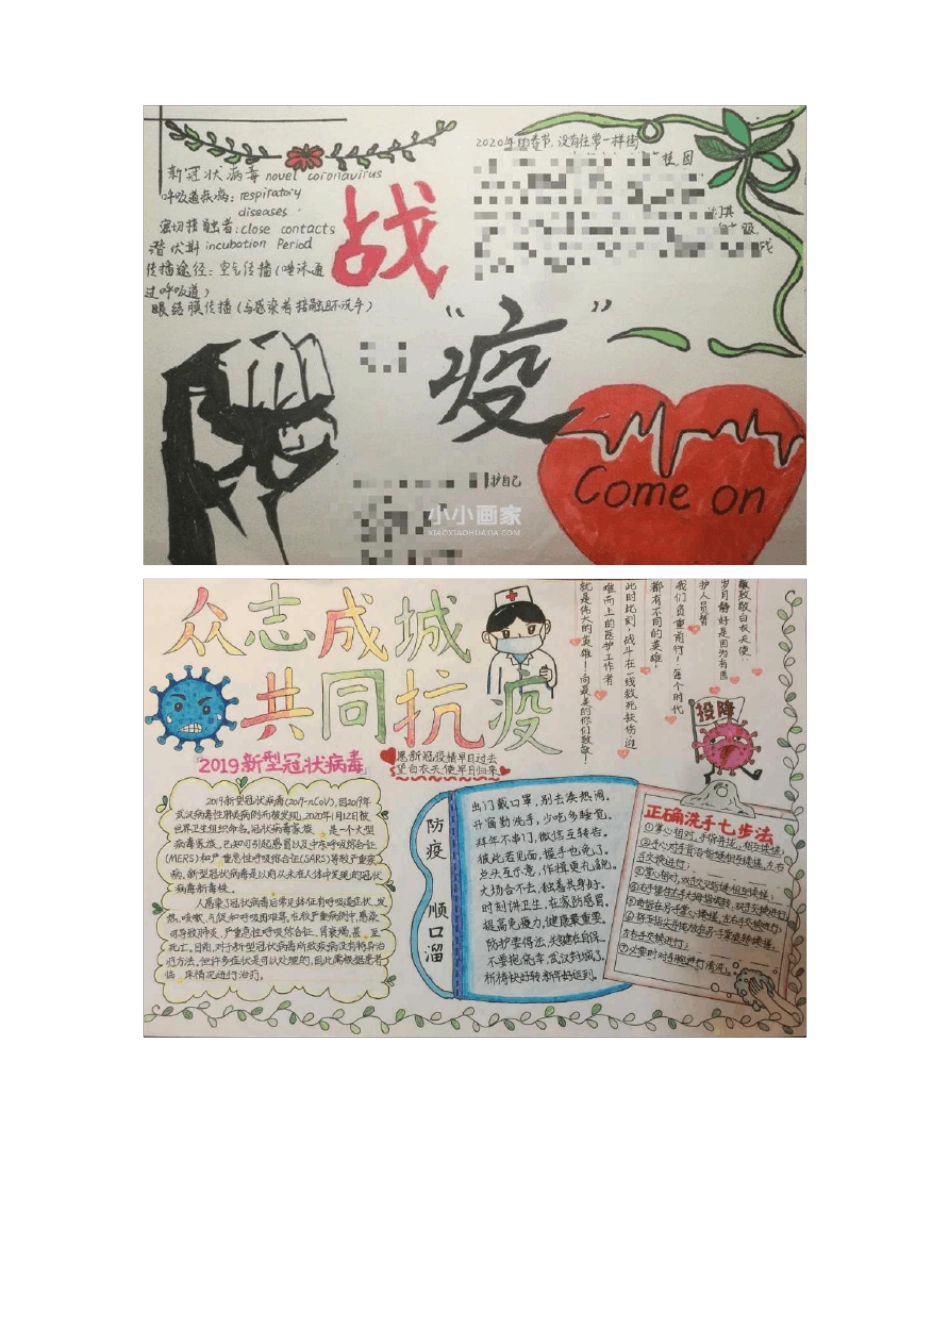 2020年的春节,没有往常一样街
新冠状病毒 novel coronavirus
呼吸道疾病: respiratory
diseases
密切接触者: close contacts
潜伏期 incubation Period
传播途径: 空气传播(唾沫通
过呼吸道)
眼结膜传播(与感染者接触且不洗手)
战
“疫”
护自己
Come on
小小画家
XIAOXIAOHUAGA.COM
众志成城
共同抗疫
2019新型冠状病毒
愿新冠疫情早日过去
望白衣天使早日归来
致敬白衣天使:
岁月静好是因为有医
护人员替
我们负重前行!每个时代
都有不同的英雄
此时此刻,战斗在一线救死扶伤,迎
难而上的医护工作者
就是伟大的英雄!向最美的你们致敬!
投降
2019新型冠状病毒(2019-nCoV),因2019年
武汉病毒性肺炎病例而被发现,2020年1月12日被
世界卫生组织命名。冠状病毒家族 是一个大型
病毒家族,已知可引起感冒以及中东呼吸综合征
(MERS)和严重急性呼吸综合征(SARS)等较严重疾
病,新型冠状病毒是以前从未在人体中发现的冠状
病毒新毒株。
人感染了冠状病毒后常见体征有呼吸道症状、发
热、咳嗽、气促和呼吸困难等。在较严重病例中,感染
可导致肺炎、严重急性呼吸综合征、肾衰竭,甚 至
死亡。目前,对于新型冠状病毒所致疾病没有特异治
疗方法。但许多症状是可以处理的,因此需根据患者
临 床情况进行治疗。
防疫 顺口溜
出门戴口罩,别去凑热闹。
开窗勤洗手,少吃多睡觉。
拜年不串门,微信互转告。
彼此若见面,握手也免了。
点头互示意,作揖更礼貌。
大场合不去,独善其身好。
时刻讲卫生,在家防感冒。
提高免疫力,健康最重要。
防护要得法,关键在自保。
不要抱侥幸,武汉封城了。
祈祷快好转,新年好运到。
正确洗手七步法
①掌心相对,手指并拢,相互揉搓;
②手心对手背沿指缝相互揉搓,左右
手交换进行;
③掌心相对,双手交叉指缝相互揉搓;